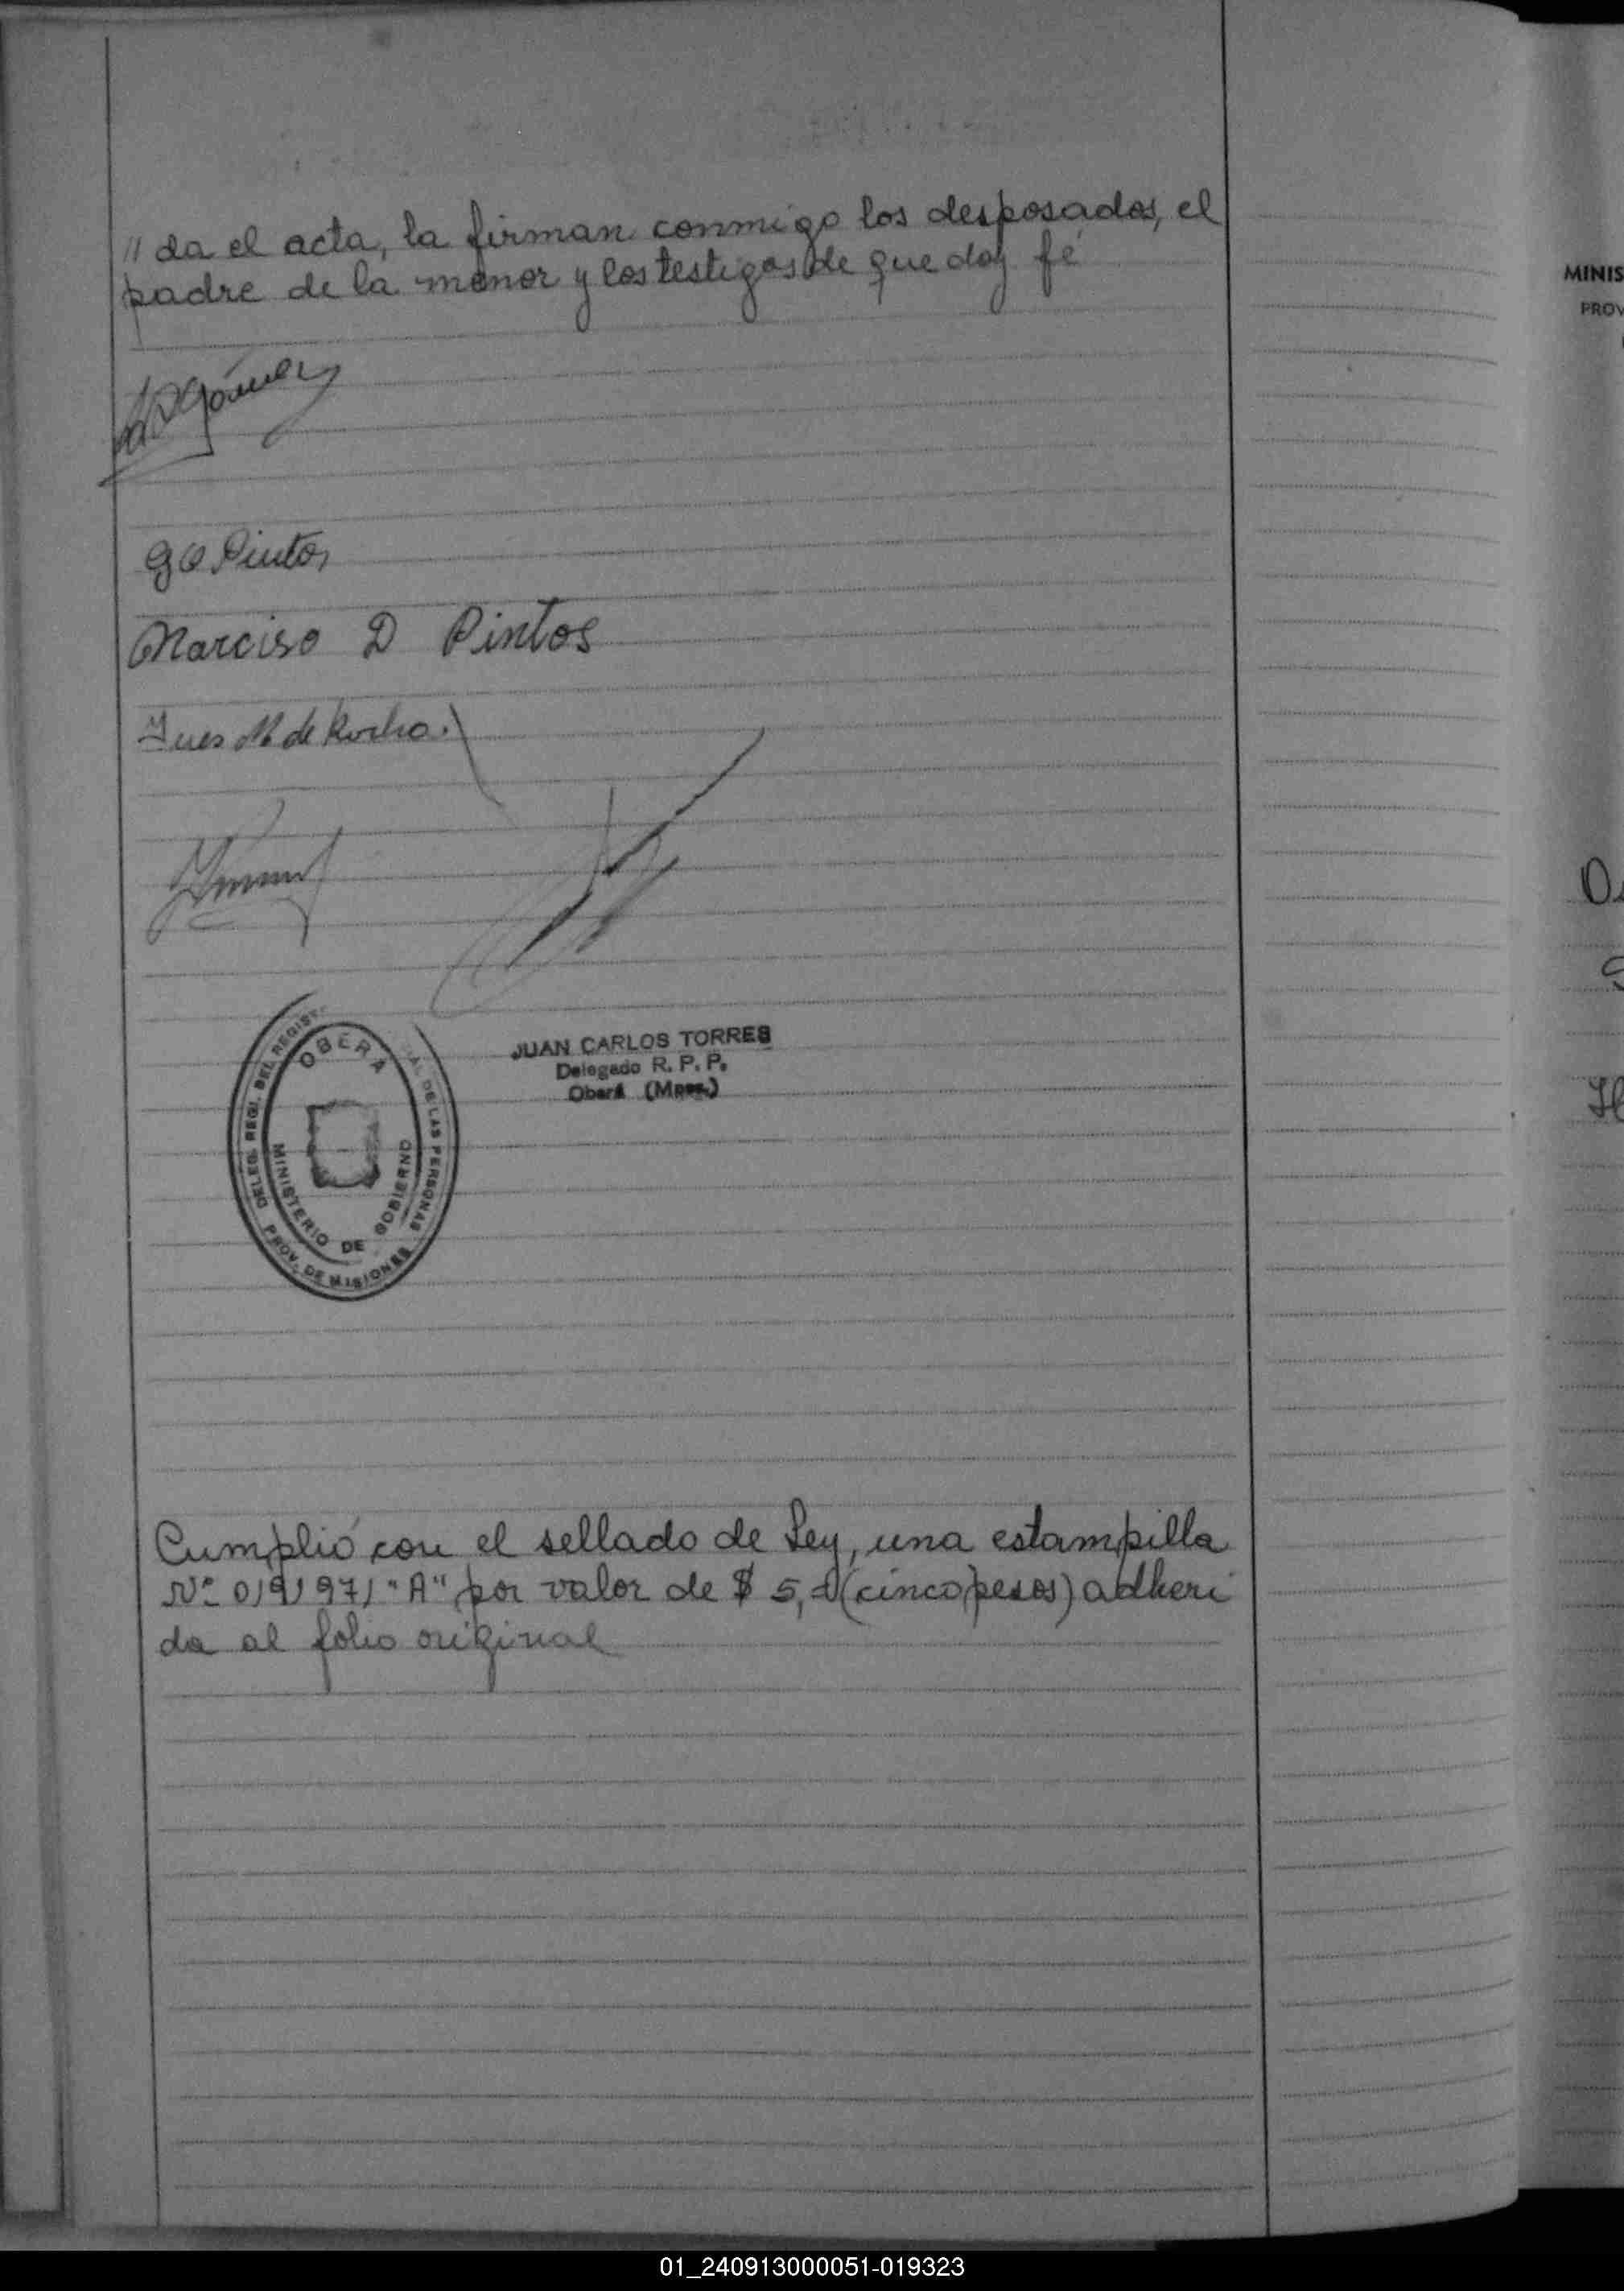 // da el acta, la firman conmigo los desposados, el
padre de la menor y los testigos de que doy fé
Gómez
G O Pintos
Narciso D Pintos
Ines M de Rocha.
JUAN CARLOS TORRES
Delegado R. P. P.
Oberá (Mnes.)
DELEG. REGI. DEL REGIST
AL DE LAS PERSONAS
OBERA
MINISTERIO DE GOBIERNO
PROV. DE MISIONES
Cumplió con el sellado de Ley, una estampilla
Nº 0191971 "A" por valor de $ 5, (cinco pesos) adheri
da al folio original
MINIS
PROV
01_240913000051-019323